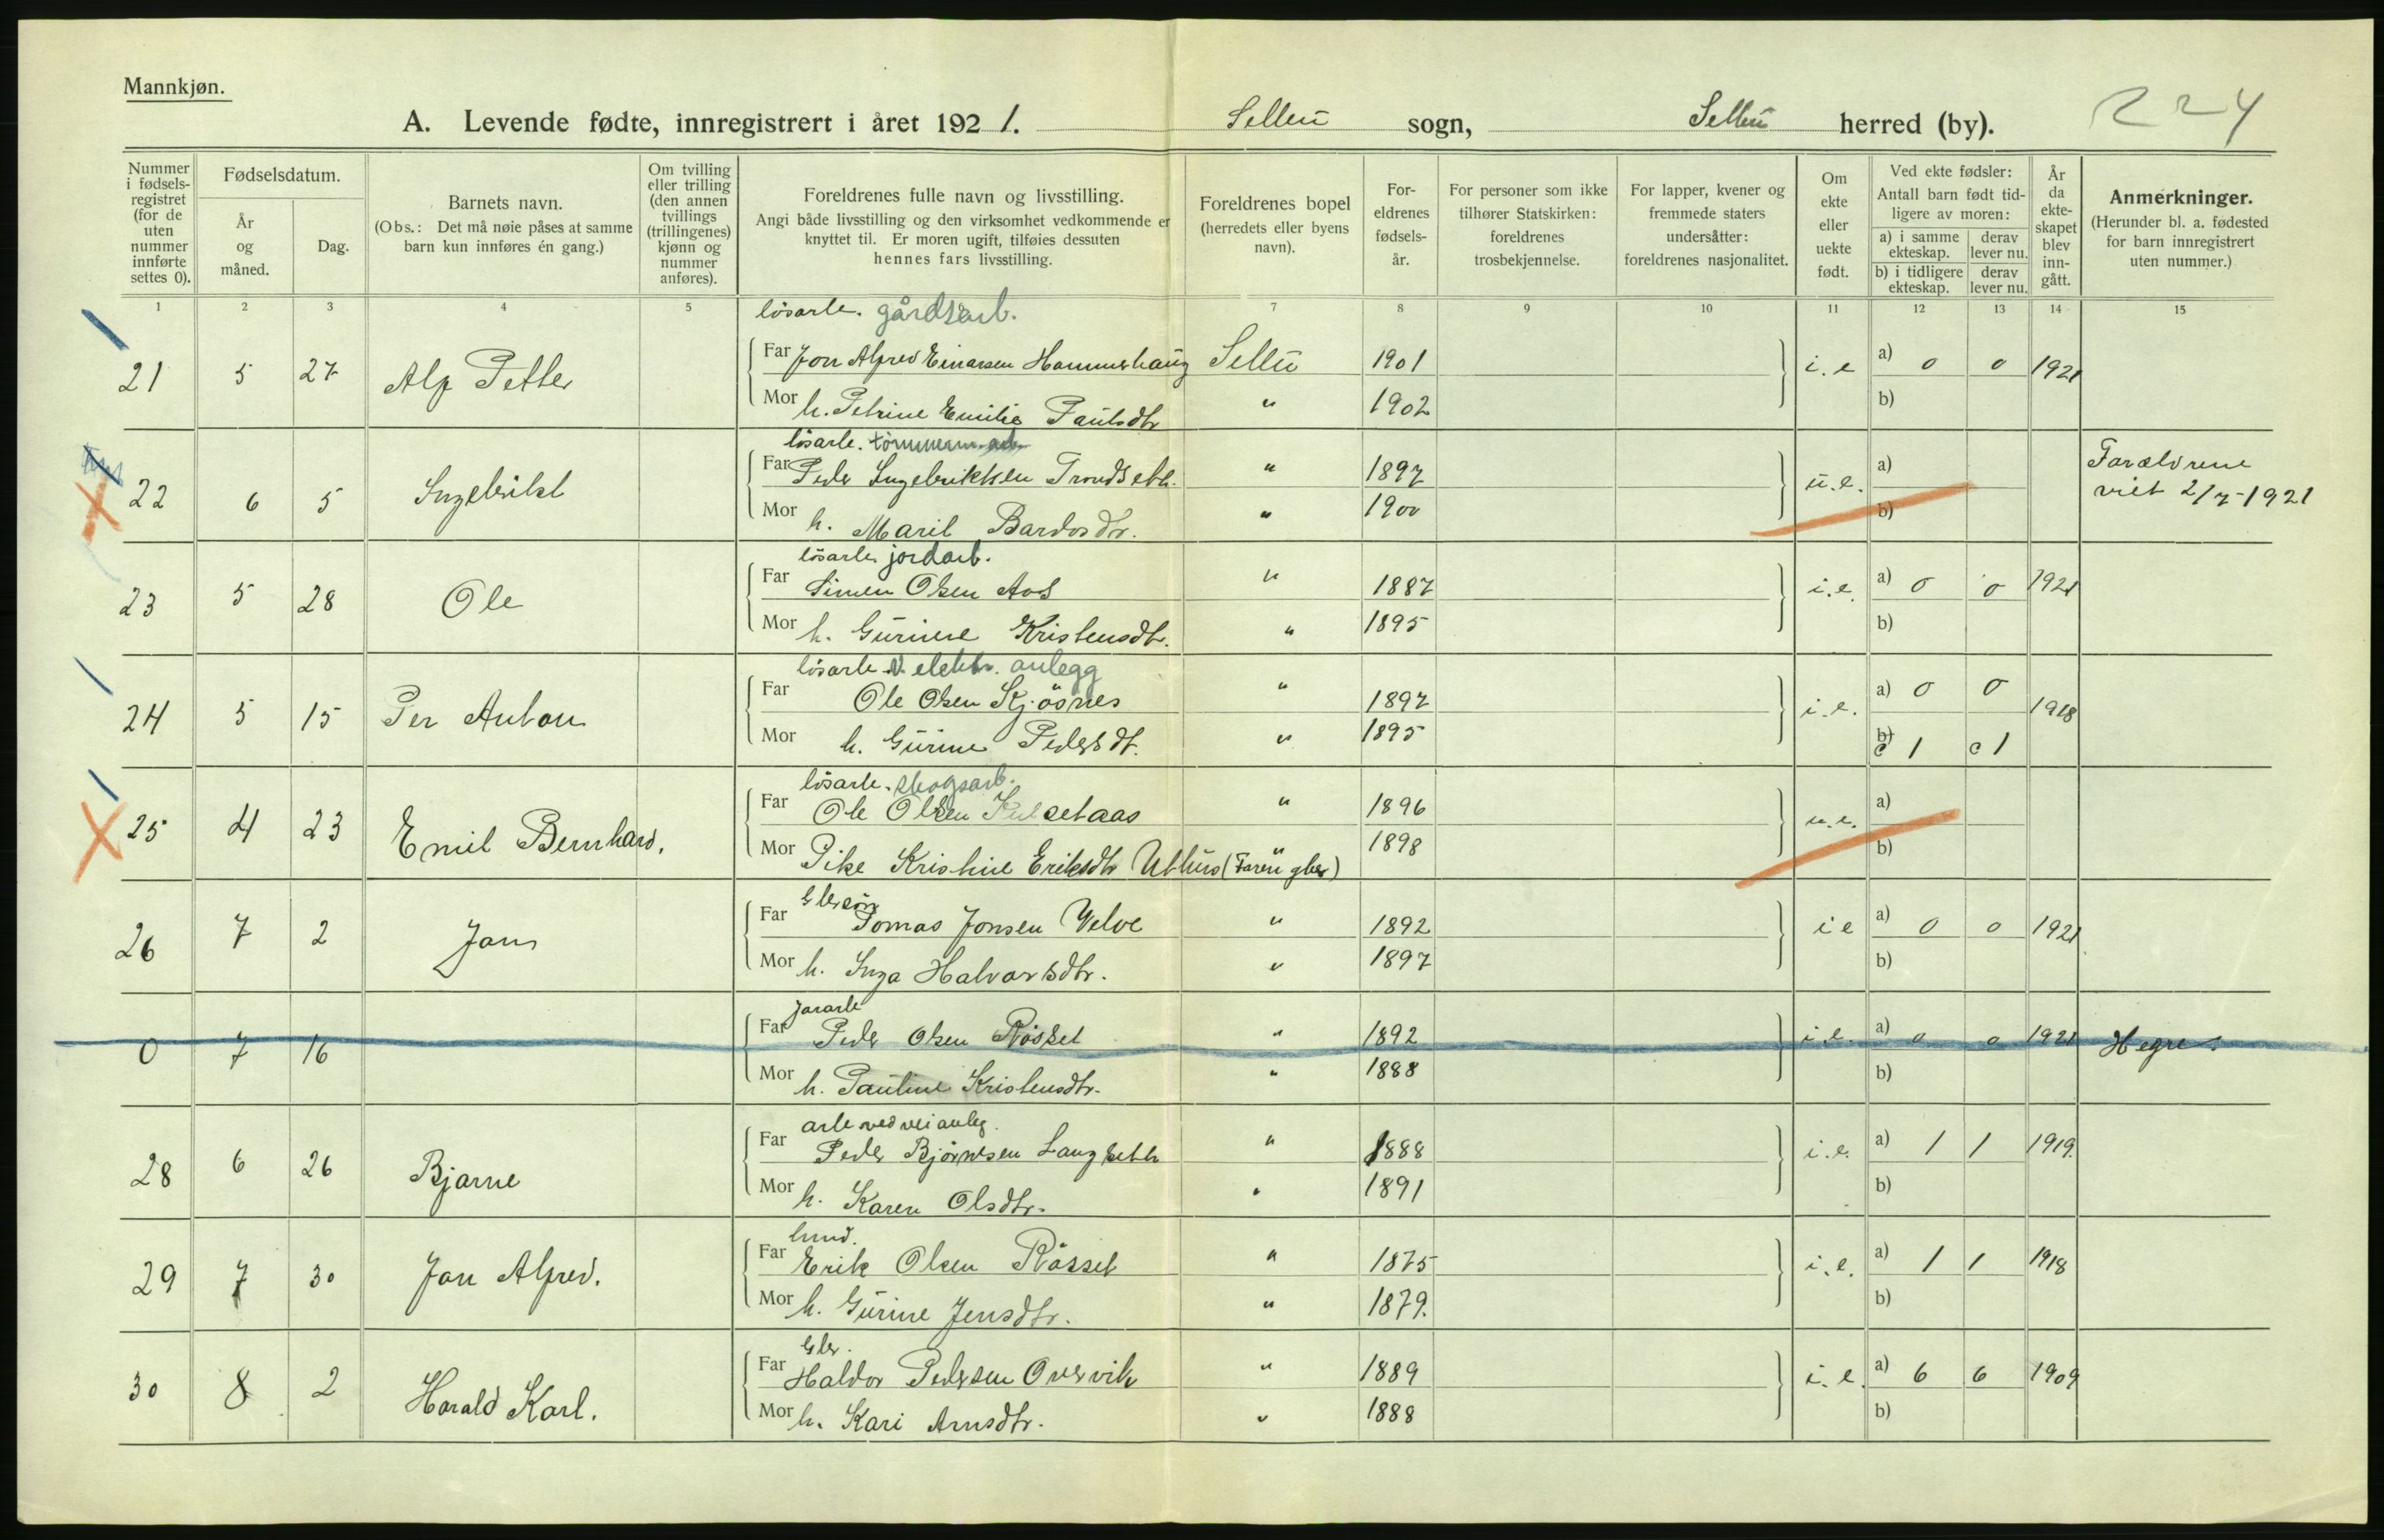 Mannkjøn.
A. Levende fødte, innregistrert i året 1921. Selbu sogn, Selbu herred (by). 224
Nummer i fødsels-registret (for de uten nummer innførte settes 0).
Fødselsdatum.
År og måned.
Dag.
Barnets navn.
(Obs.: Det må nøie påses at samme barn kun innføres én gang.)
Om tvilling eller trilling (den annen tvillings (trillingenes) kjønn og nummer anføres).
Foreldrenes fulle navn og livsstilling.
Angi både livsstilling og den virksomhet vedkommende er knyttet til. Er moren ugift, tilføies dessuten hennes fars livsstilling.
Foreldrenes bopel (herredets eller byens navn).
For-eldrenes fødsels-år.
For personer som ikke tilhører Statskirken: foreldrenes trosbekjennelse.
For lapper, kvener og fremmede staters undersåtter: foreldrenes nasjonalitet.
Om ekte eller uekte født.
Ved ekte fødsler: Antall barn født tid-ligere av moren:
a) i samme ekteskap. derav lever nu.
b) i tidligere ekteskap. derav lever nu.
År da ekte-skapet blev inn-gått.
Anmerkninger.
(Herunder bl. a. fødested for barn innregistrert uten nummer.)
1 2 3 4 5 7 8 9 10 11 12 13 14 15
løsarb. gårdsarb.
21 5 27 Alf Petter Far Jon Alfred Einarsen Hammerhaug Selbu 1901 i.e a) 0 0 1921
Mor h. Petrine Emilie Paulsdtr " 1902 b)
løsarb. tømmerm. arb.
22 6 5 Ingebrikt Far Peder Ingebriktsen Trondseth. " 1897 u.e. a) Forældrene viet 2/7-1921
Mor h. Marit Bardosdtr. " 1900 b)
løsarb. jordarb.
23 5 28 Ole Far Simen Olsen Aas " 1887 i.e. a) 0 0 1921
Mor h. Gurine Kristensdtr. " 1895 b)
løsarb. v. elektr. anlegg
24 5 15 Per Anton Far Ole Olsen Kjösnes " 1897 i.e. a) 0 0 1918
Mor h. Gurine Pedersdt. " 1895 b) c 1 c 1
løsarb. skogsarb.
25 4 23 Emil Bernhard. Far Ole Olsen Kulsetaas " 1896 u.e. a)
Mor Pike Kristine Eriksdtr Uthus (Faren gbr) " 1898 b)
Gbrsøn
26 7 2 Jon Far Tomas Jonsen Velve " 1892 i e a) 0 0 1921
Mor h. Inga Halvorsdtr. " 1897 b)
Jararb
0 7 16 Far Peder Olsen Røsset " 1892 i.e. a) 0 0 1921 Hegre.
Mor h. Pauline Kristensdtr. " 1888 b)
arb ved veianleg.
28 6 26 Bjarne Far Peder Bjørnsen Langseth " 1888 i.e. a) 1 1 1919.
Mor h. Karen Olsdtr. " 1891 b)
29 7 30 Jon Alfred. Far Erik Olsen Røsset " 1875 i.e. a) 1 1 1918
Mor h. Gurine Jensdtr. " 1879. b)
Gbr.
30 8 2 Harald Karl. Far Haldor Pedersen Overvik " 1889 i.e. a) 6 6 1909
Mor h. Kari Arnsdtr. " 1888 b)